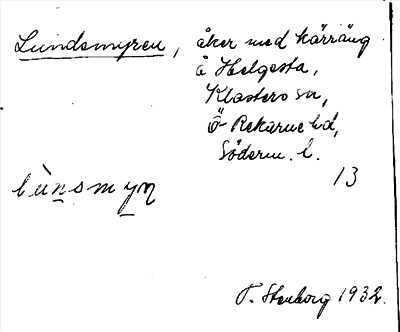 Lundsmyren, åker med kärräng
å Helgesta,
Klosters sn,
Ö-Rekarne hd,
Söderm. l.
13
lùnsmyn
T. Stenborg 1932.